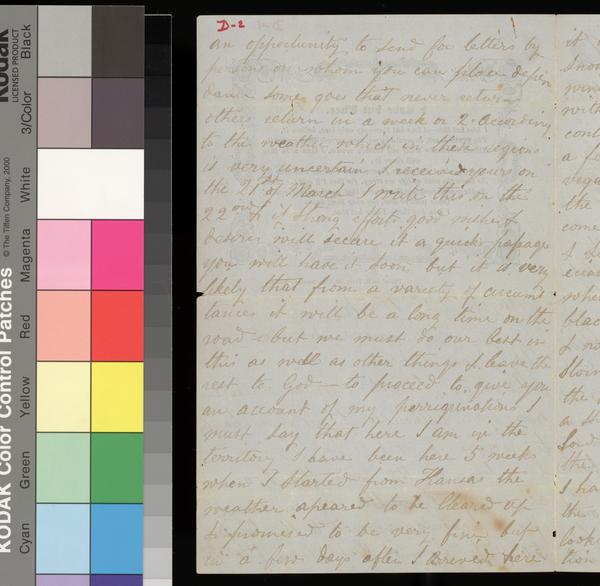 D-2
an opportunity to send for letters by
persons on whom you can place depen
dance some goes that never return
others return in a week or 2 according
to the weather which in these regions
is very uncertain I received yours on
the 21st of March I write this on the
22nd if strong efforts good wishes &
desires will secure it a quick passage
you will have it soon but it is very
likely that from a variety of circums
tances it will be a long time on the
road - but we must do our best in
this as well as other things & leave the
rest to God — to proceed to give you
an account of my perrigrinations I
must say that here I am in the
territory I have been here 5 weeks
when I started from Kansas the
weather apeared to be cleared up
& promised to be very fine but
in a few days after I arrived here
it
snow
wind
with
cont
a f
the
come
when
blac
the
a s
the
I ha
the
look
tion
KODAK Color Control Patches
© The Tiffen Company, 2000
Kodak
LICENSED PRODUCT
Cyan
Green
Yellow
Red
Magenta
White
3/Color
Black